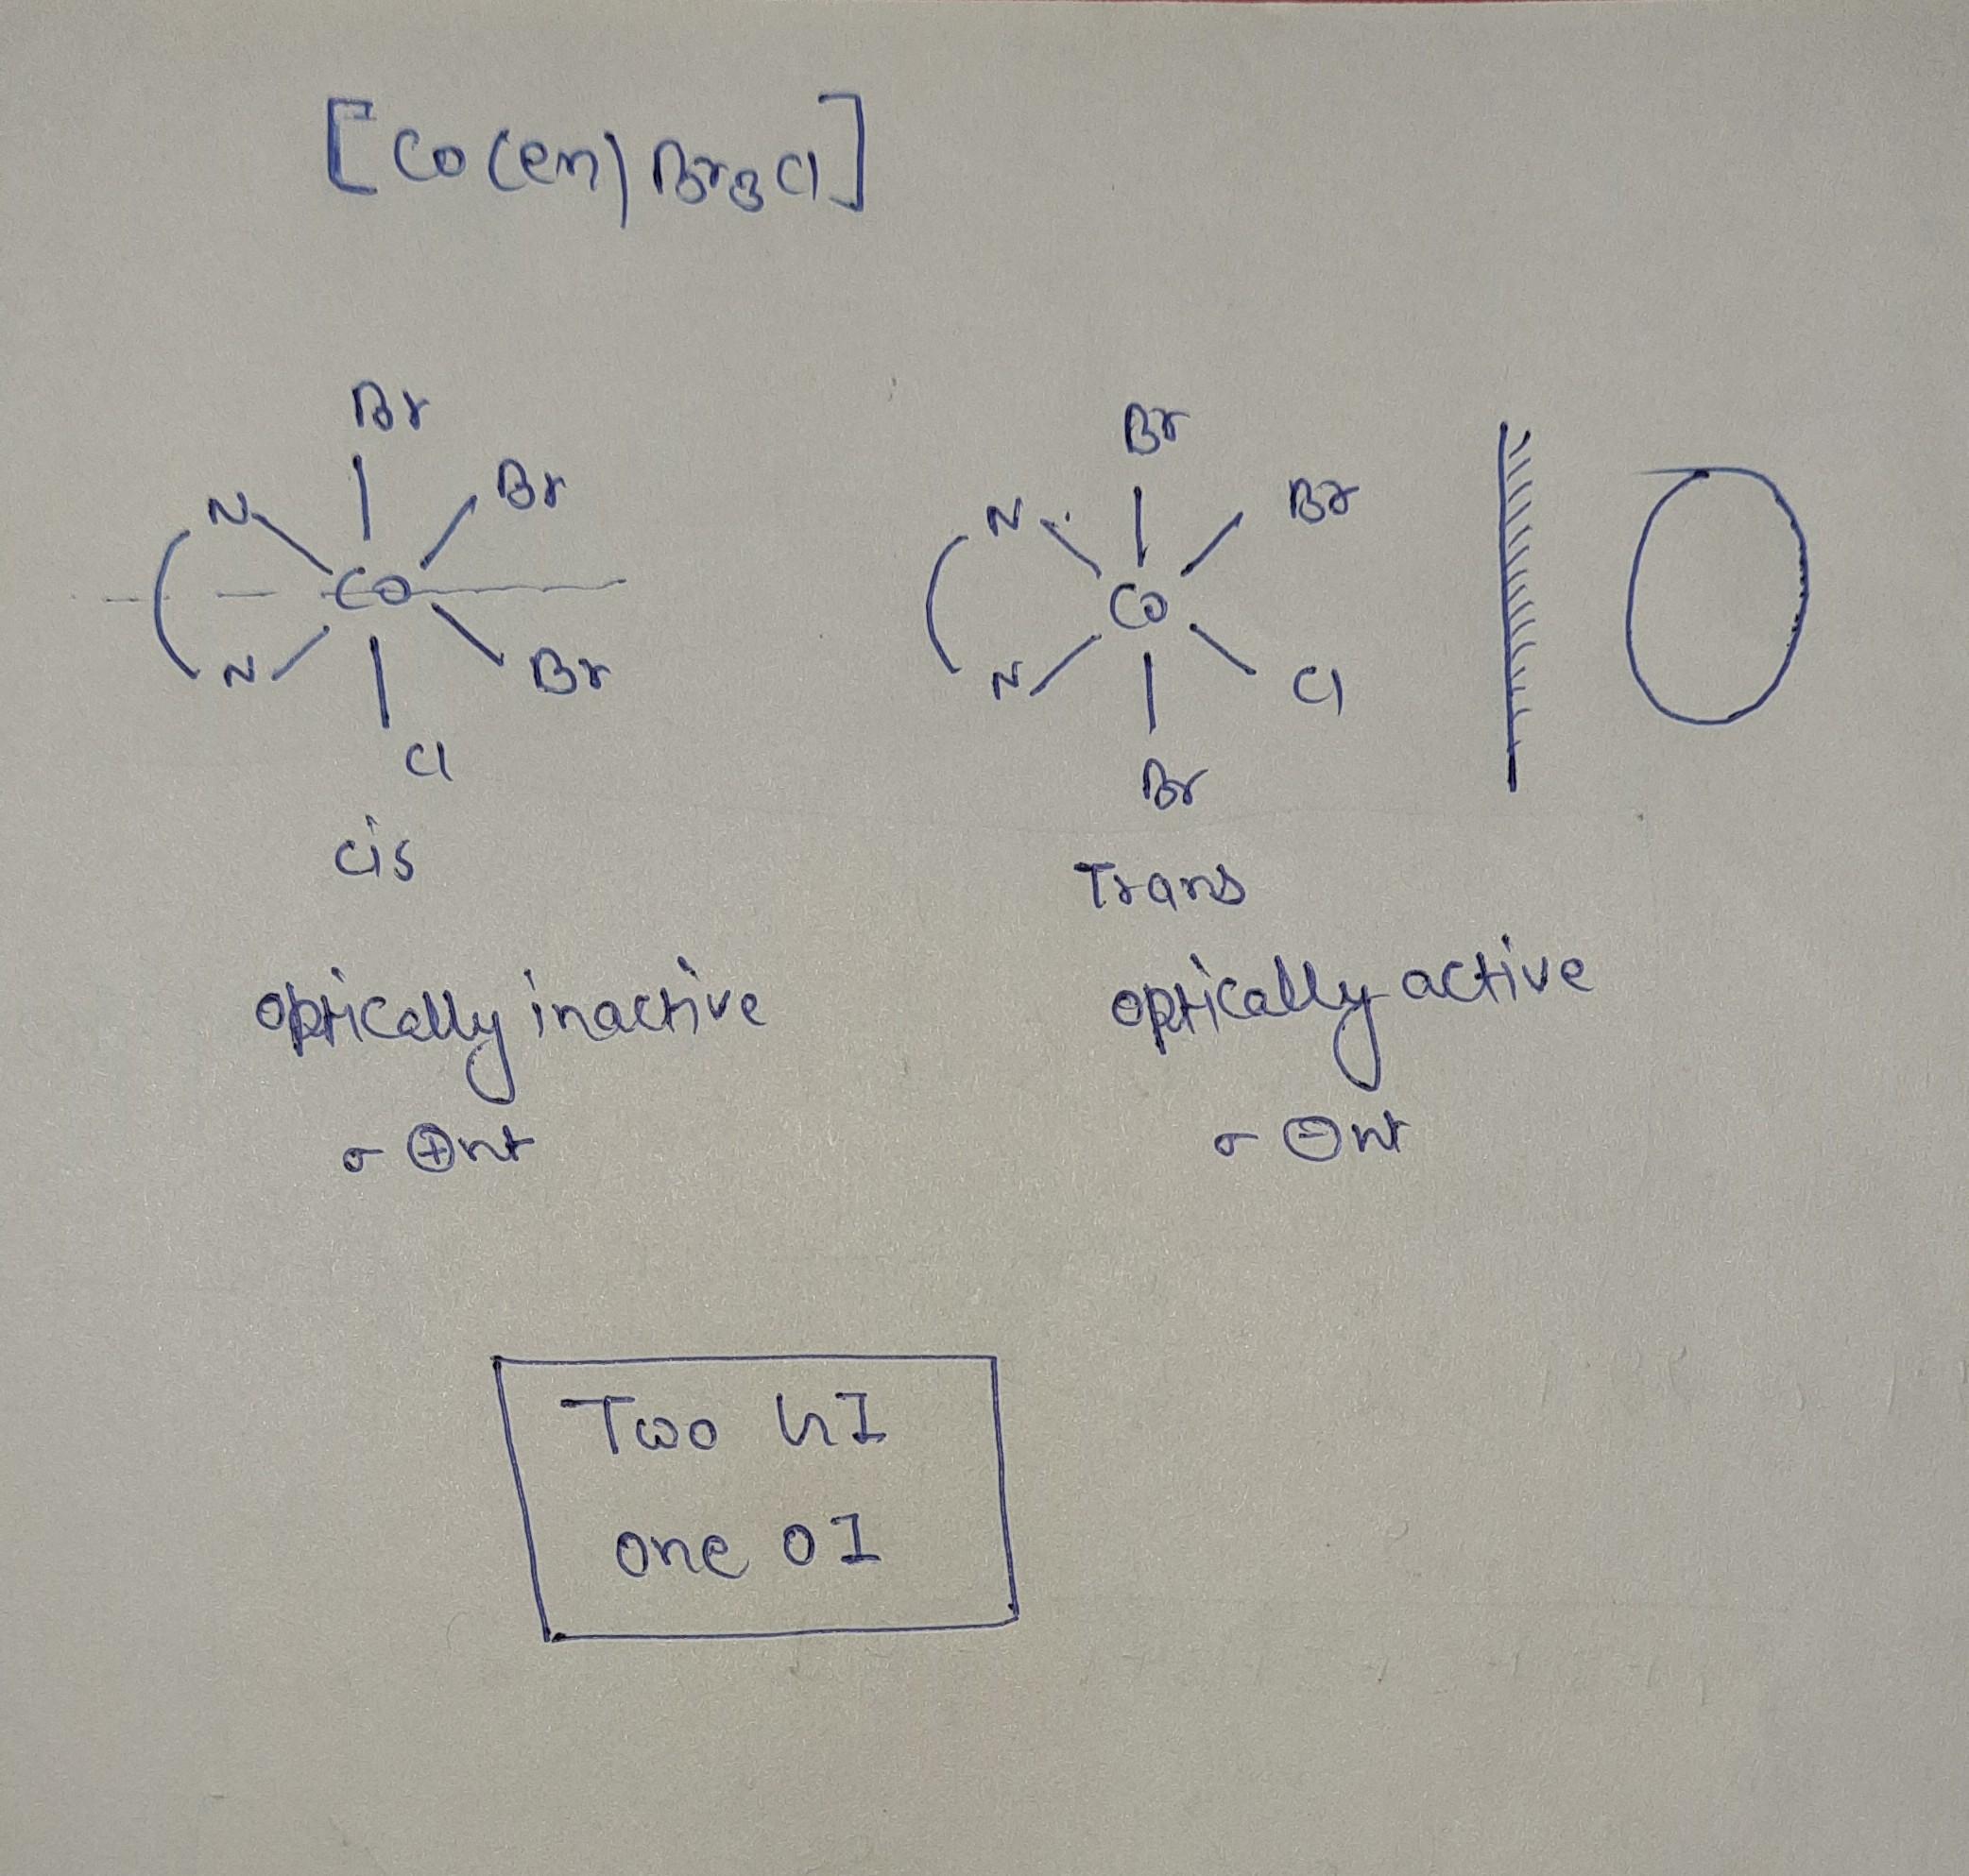 [Co(en)Br3Cl]
Br
Br
N
Co
N
Br
Cl
cis
Br
Br
N
Co
N
Cl
Br
Trans
optically inactive
σ ⊕nt
optically active
σ ⊖nt
Two GI
one OI